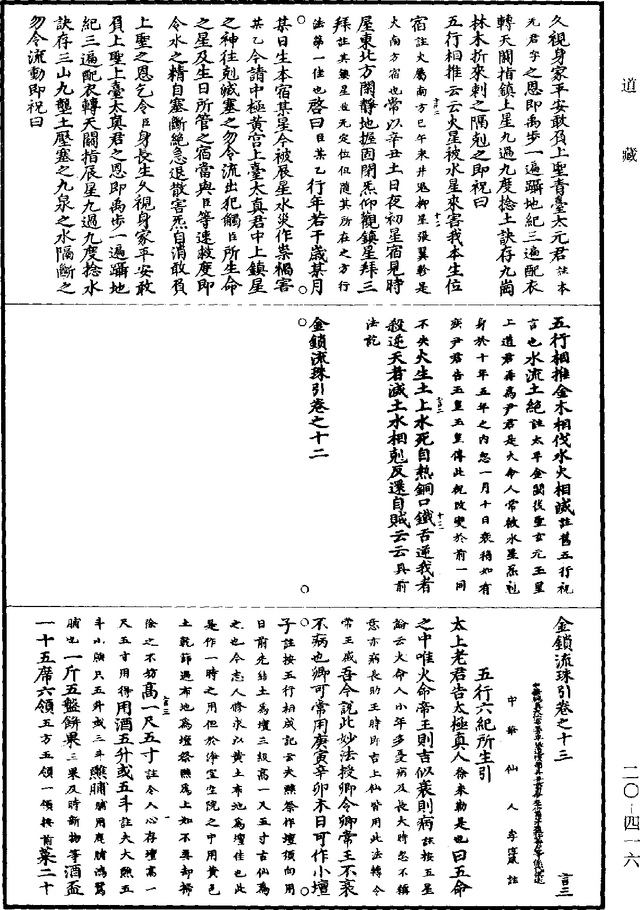 道藏
久視身家平安敢負上聖青臺太元君註本
元君字之恩即禹步一遍躡地紀三遍配衣
轉天關指鎮上星九過九度捻土訣存九崗
林木折來刺之隔剋之即祝曰
五行相推云云火星被水星來害我本生位
宿註火屬南方巳午未井鬼柳星張翼軫是
大南方宿也常以辛丑土日夜初星宿見時
屋東北方閑靜地握固閉炁仰觀鎮星拜三
拜註其鎮星並无定位但隨其所在之方行
法第一佳也啓曰臣某乙行年若干歲某月
某日生本宿某星今被辰星水災作祟禍害
某乙今請中極黃宮上臺太真君中上鎮星
之神往剋滅塞之勿令流出犯觸臣所生命
之星及生日所管之宿當與臣等速救度即
令水之精自塞斷絕急退散害炁自消敢負
上聖之恩乞令臣身長生久視身家平安敢
負上聖上臺太真君之恩即禹步一遍躡地
紀三遍配衣轉天關指辰星九過九度捻水
訣存三山九壟土壓塞之九泉之水隔斷之
勿令流動即祝曰
五行相推金木相伐水火相滅註舊五行祝
言也水流土絕註太平金闕後聖玄元玉皇
上道君再為尹君是火命人常被水星炁剋
身於十年五年之內忽一月十日衰禍如有
疾尹君告玉皇玉皇傳此祝改變於前一同
不失火生土上水死自熱銅口鐵舌逆我者
殺逆天者滅土水相剋反還自賊云云具前
法訖
金鎖流珠引卷之十二
金鎖流珠引卷之十三 言三
中華仙人李淳風註
五行六紀所生引
太上老君告太極真人徐來勒是也曰五命
之中唯火命帝王則吉似衰則病註按五星
論云火命人小年多憂病及長大時忽不稱
意亦病長助王時即吉上仙皆用此法轉令
常王咸吾今說此妙法授卿令卿常王不衰
不病也卿可常用庚寅辛卯木日可作小壇
子註按五行相成記云夫醮祭作壇須向用
日前先結土為壇三級高一尺五寸古仙為
之也今志人修求以黃土布地為壇佳也此
是作一時之用但於淨室空院之中用黃色
土乾篩過布地為壇祭醮為上如不要却掃
除之不妨高一尺五寸註令人心存壇高一
尺五寸用得用酒五升或五斗註大大醮五
斗小醮只五升或三斗醮脯脯用鹿脯鴻鴛
脯也一斤五盤餅果三果及時新物等酒盃
一十五席六領五方五領一領按前菜二十
二〇-四一六